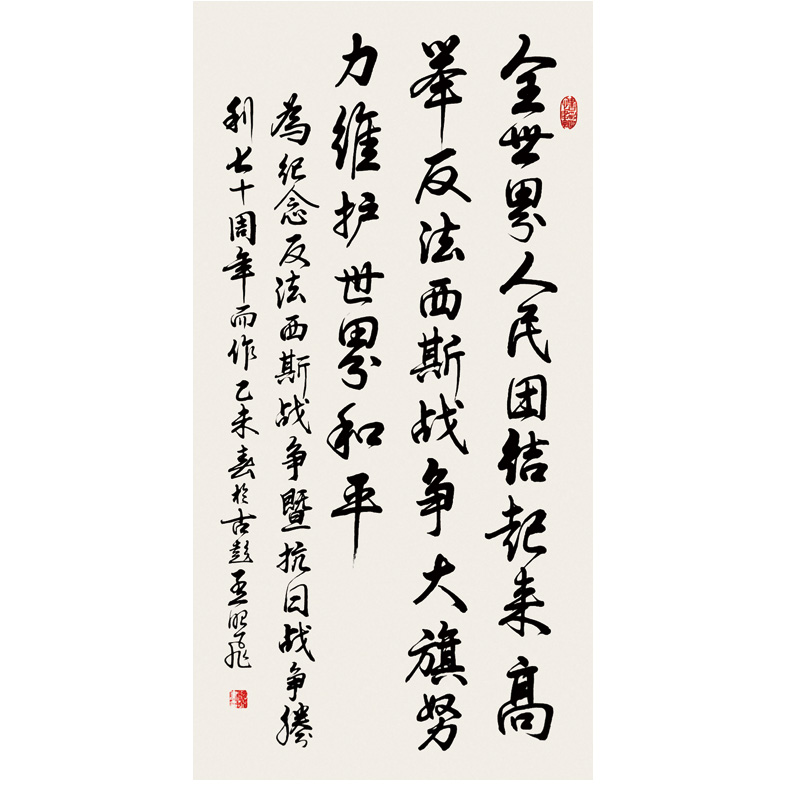 全世界人民团结起来高
举反法西斯战争大旗努
力维护世界和平
為纪念反法西斯战争暨抗日战争勝
利七十周年而作乙未春於古彭王昭飛